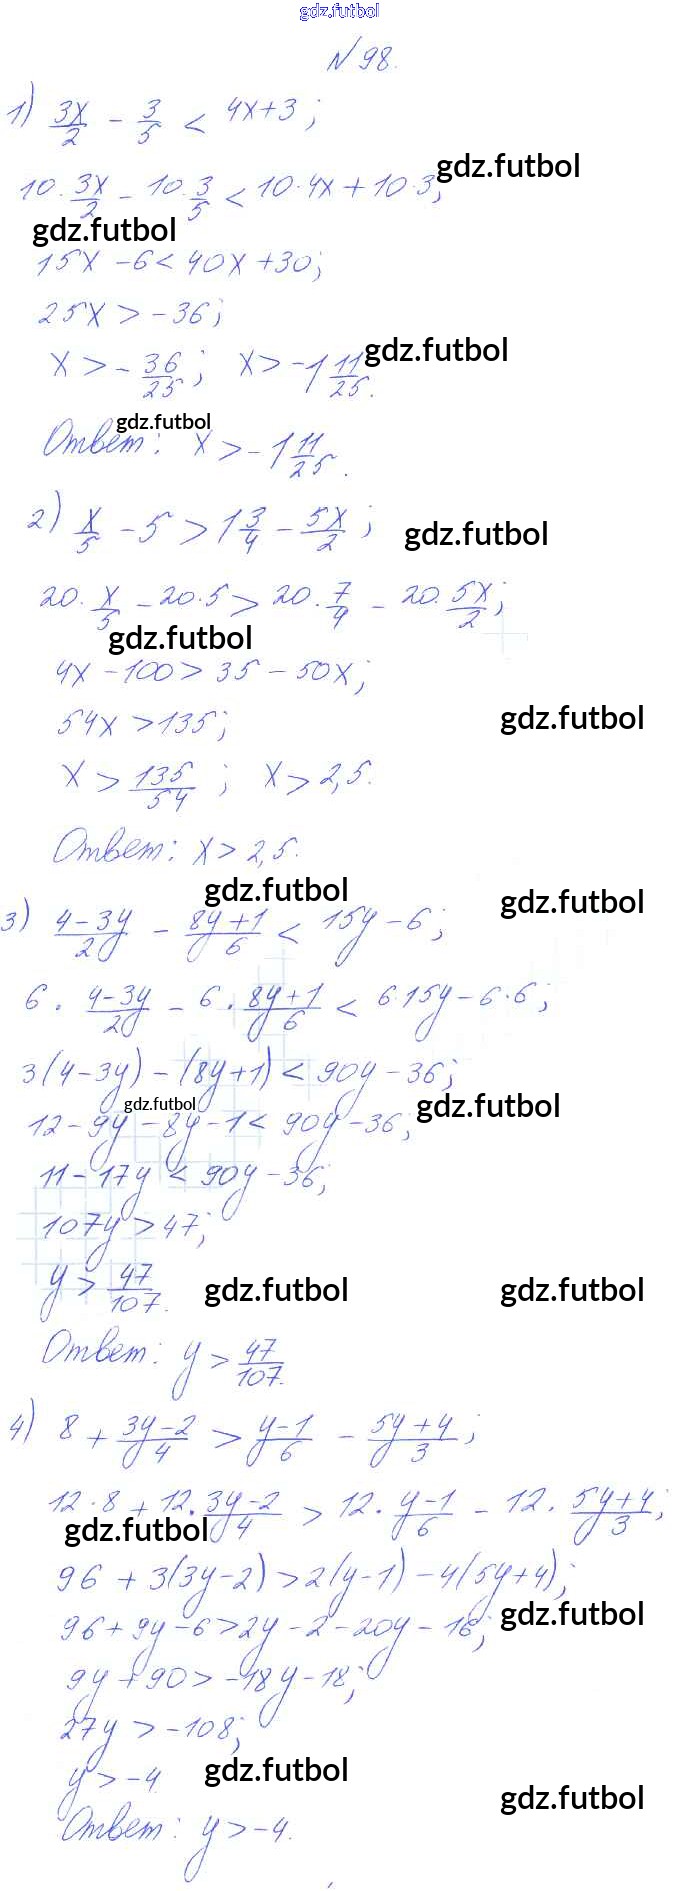 gdz.futbol
№98.
1) 3x/2 - 3/5 < 4x+3;
10·3x/2 - 10·3/5 < 10·4x + 10·3;
gdz.futbol
gdz.futbol
15x - 6 < 40x + 30;
25x > -36;
x > -36/25; x > -1 11/25.
gdz.futbol
gdz.futbol
Ответ: x > -1 11/25.
2) x/5 - 5 > 1 3/4 - 5x/2;
gdz.futbol
20·x/5 - 20·5 > 20·7/4 - 20·5x/2;
gdz.futbol
4x - 100 > 35 - 50x;
54x > 135;
gdz.futbol
x > 135/54; x > 2,5.
Ответ: x > 2,5.
gdz.futbol
gdz.futbol
3) (4-3y)/2 - (8y+1)/6 < 15y - 6;
6·(4-3y)/2 - 6·(8y+1)/6 < 6·15y - 6·6;
3(4-3y) - (8y+1) < 90y - 36;
gdz.futbol
gdz.futbol
12 - 9y - 8y - 1 < 90y - 36;
11 - 17y < 90y - 36;
107y > 47;
y > 47/107.
gdz.futbol
gdz.futbol
Ответ: y > 47/107.
4) 8 + (3y-2)/4 > (y-1)/6 - (5y+4)/3;
12·8 + 12·(3y-2)/4 > 12·(y-1)/6 - 12·(5y+4)/3;
gdz.futbol
96 + 3(3y-2) > 2(y-1) - 4(5y+4);
gdz.futbol
96 + 9y - 6 > 2y - 2 - 20y - 16;
9y + 90 > -18y - 18;
27y > -108;
y > -4.
gdz.futbol
gdz.futbol
Ответ: y > -4.